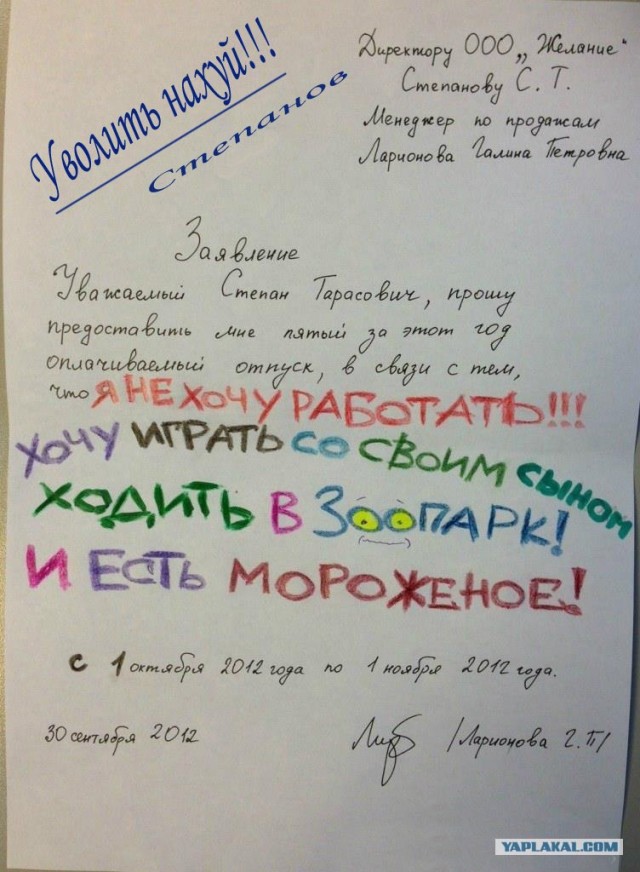 Уволить нахуй!!!
Степанов
Директору ООО „Желание"
Степанову С. Т.
Менеджер по продажам
Ларионова Галина Петровна
Заявление
Уважаемый Степан Тарасович, прошу
предоставить мне пятый за этот год
оплачиваемый отпуск, в связи с тем,
что Я НЕ ХОЧУ РАБОТАТЬ!!!
ХОЧУ ИГРАТЬ СО СВОИМ СЫНОМ
ХОДИТЬ В ЗООПАРК!
И ЕСТЬ МОРОЖЕНОЕ!
с 1 октября 2012 года по 1 ноября 2012 года.
30 сентября 2012
/Ларионова Г. П/
YAPLAKAL.COM